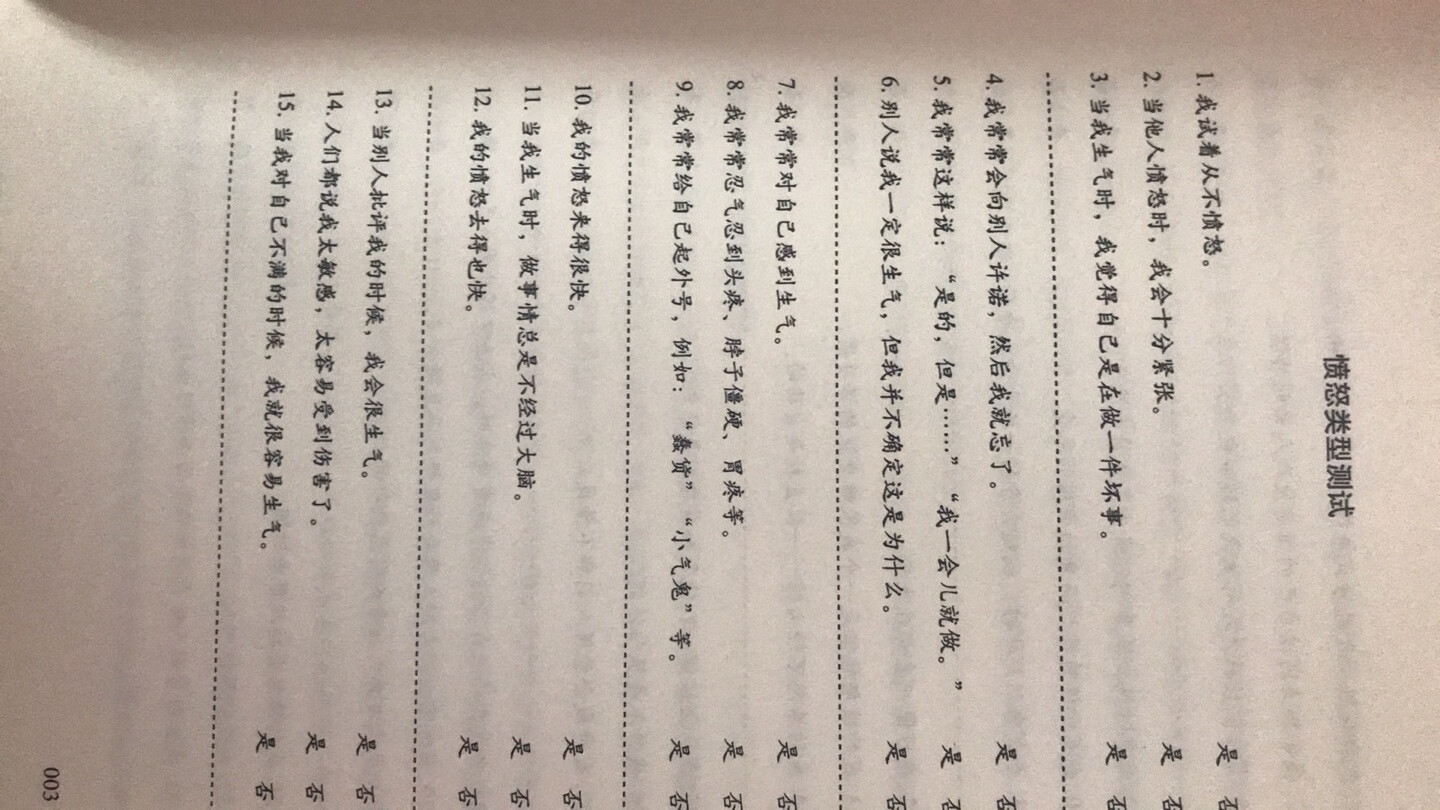 愤怒类型测试
1. 我试着从不愤怒。 是 否
2. 当他人愤怒时，我会十分紧张。 是 否
3. 当我生气时，我觉得自己是在做一件坏事。 是 否
4. 我常常会向别人许诺，然后我就忘了。 是 否
5. 我常常这样说：“是的，但是……”“我一会儿就做。” 是 否
6. 别人说我一定很生气，但我并不确定这是为什么。 是 否
7. 我常常对自己感到生气。 是 否
8. 我常常忍气忍到头疼、脖子僵硬、胃疼等。 是 否
9. 我常常给自己起外号，例如：“蠢货”“小气鬼”等。 是 否
10. 我的愤怒来得很快。 是 否
11. 当我生气时，做事情总是不经过大脑。 是 否
12. 我的愤怒去得也快。 是 否
13. 当别人批评我的时候，我会很生气。 是 否
14. 人们都说我太敏感，太容易受到伤害了。 是 否
15. 当我对自己不满的时候，我就很容易生气。 是 否
003